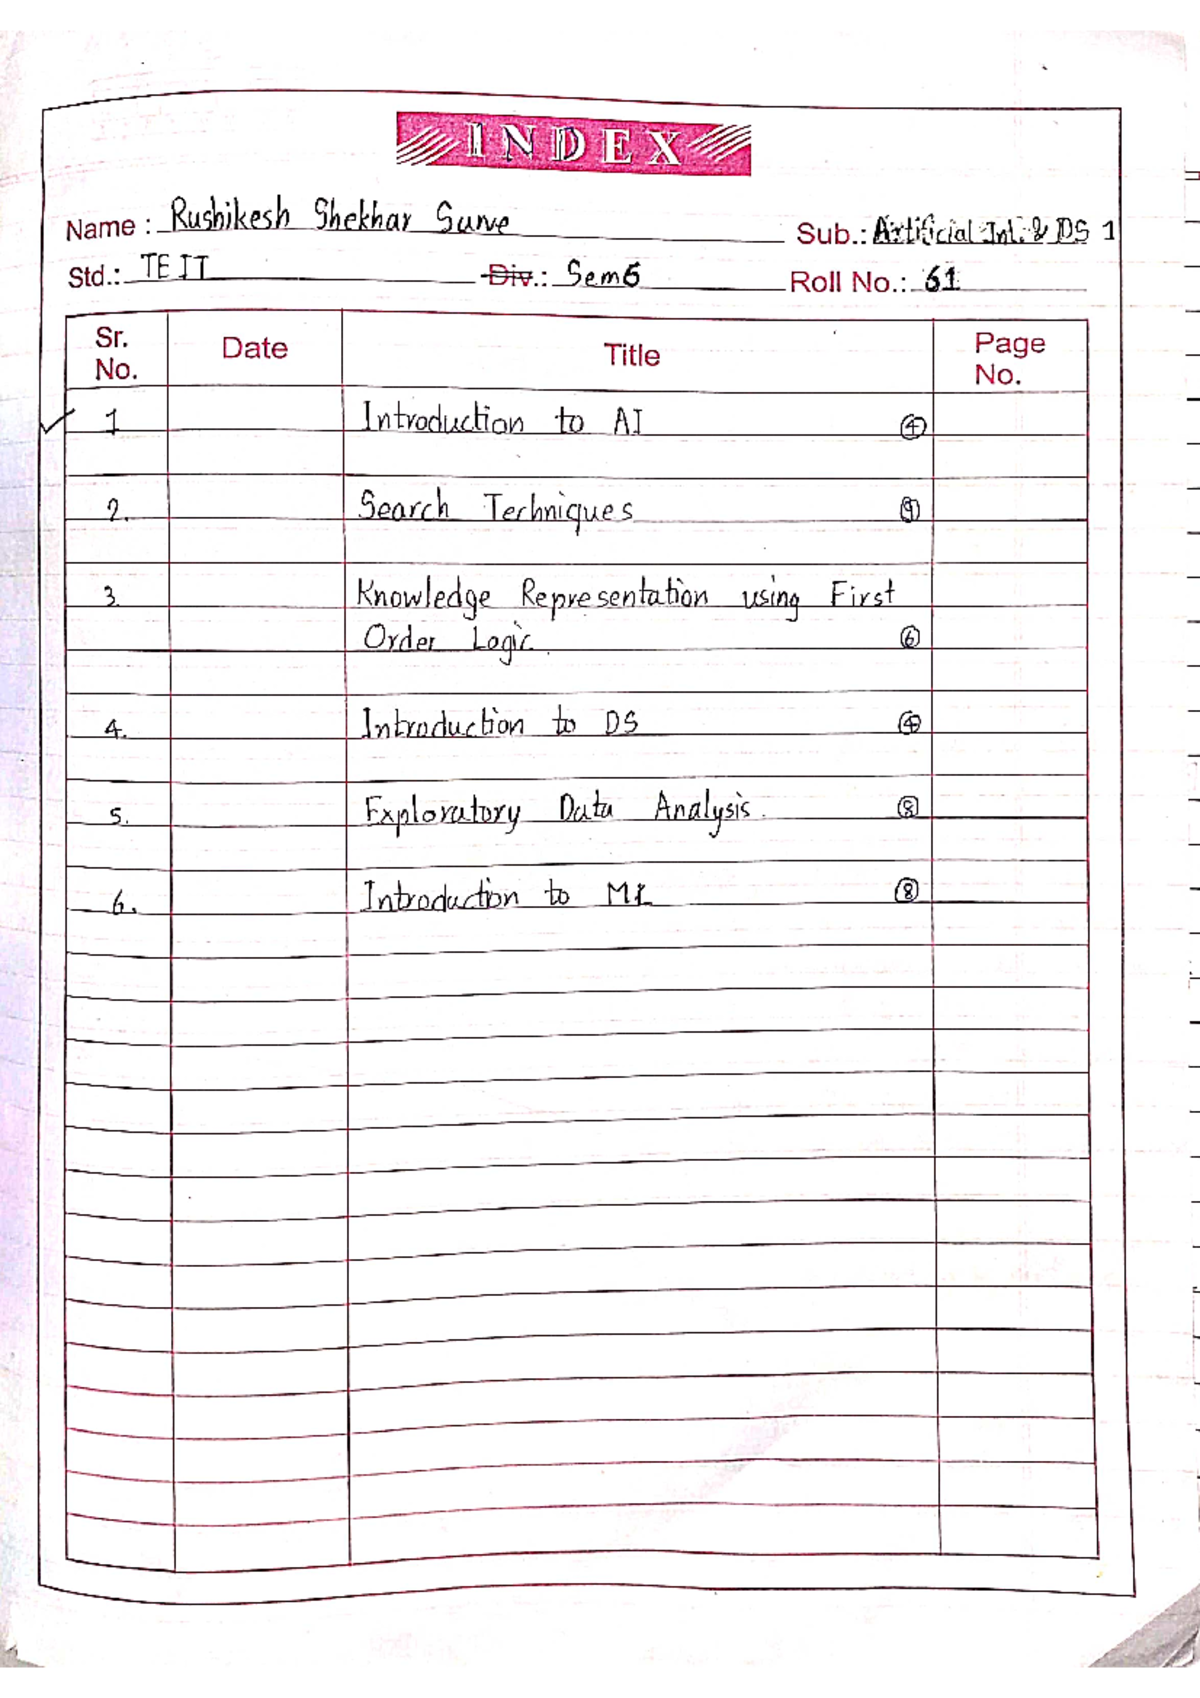 INDEX
Name : Rushikesh Shekhar Surve Sub.: Artificial Int. & DS 1
Std.: TE IT Div.: Sem 6 Roll No.: 61
Sr. No. Date Title Page No.
1 Introduction to AI 4
2. Search Techniques 9
3. Knowledge Representation using First
Order Logic. 6
4. Introduction to DS 4
5. Exploratory Data Analysis. 8
6. Introduction to ML 8